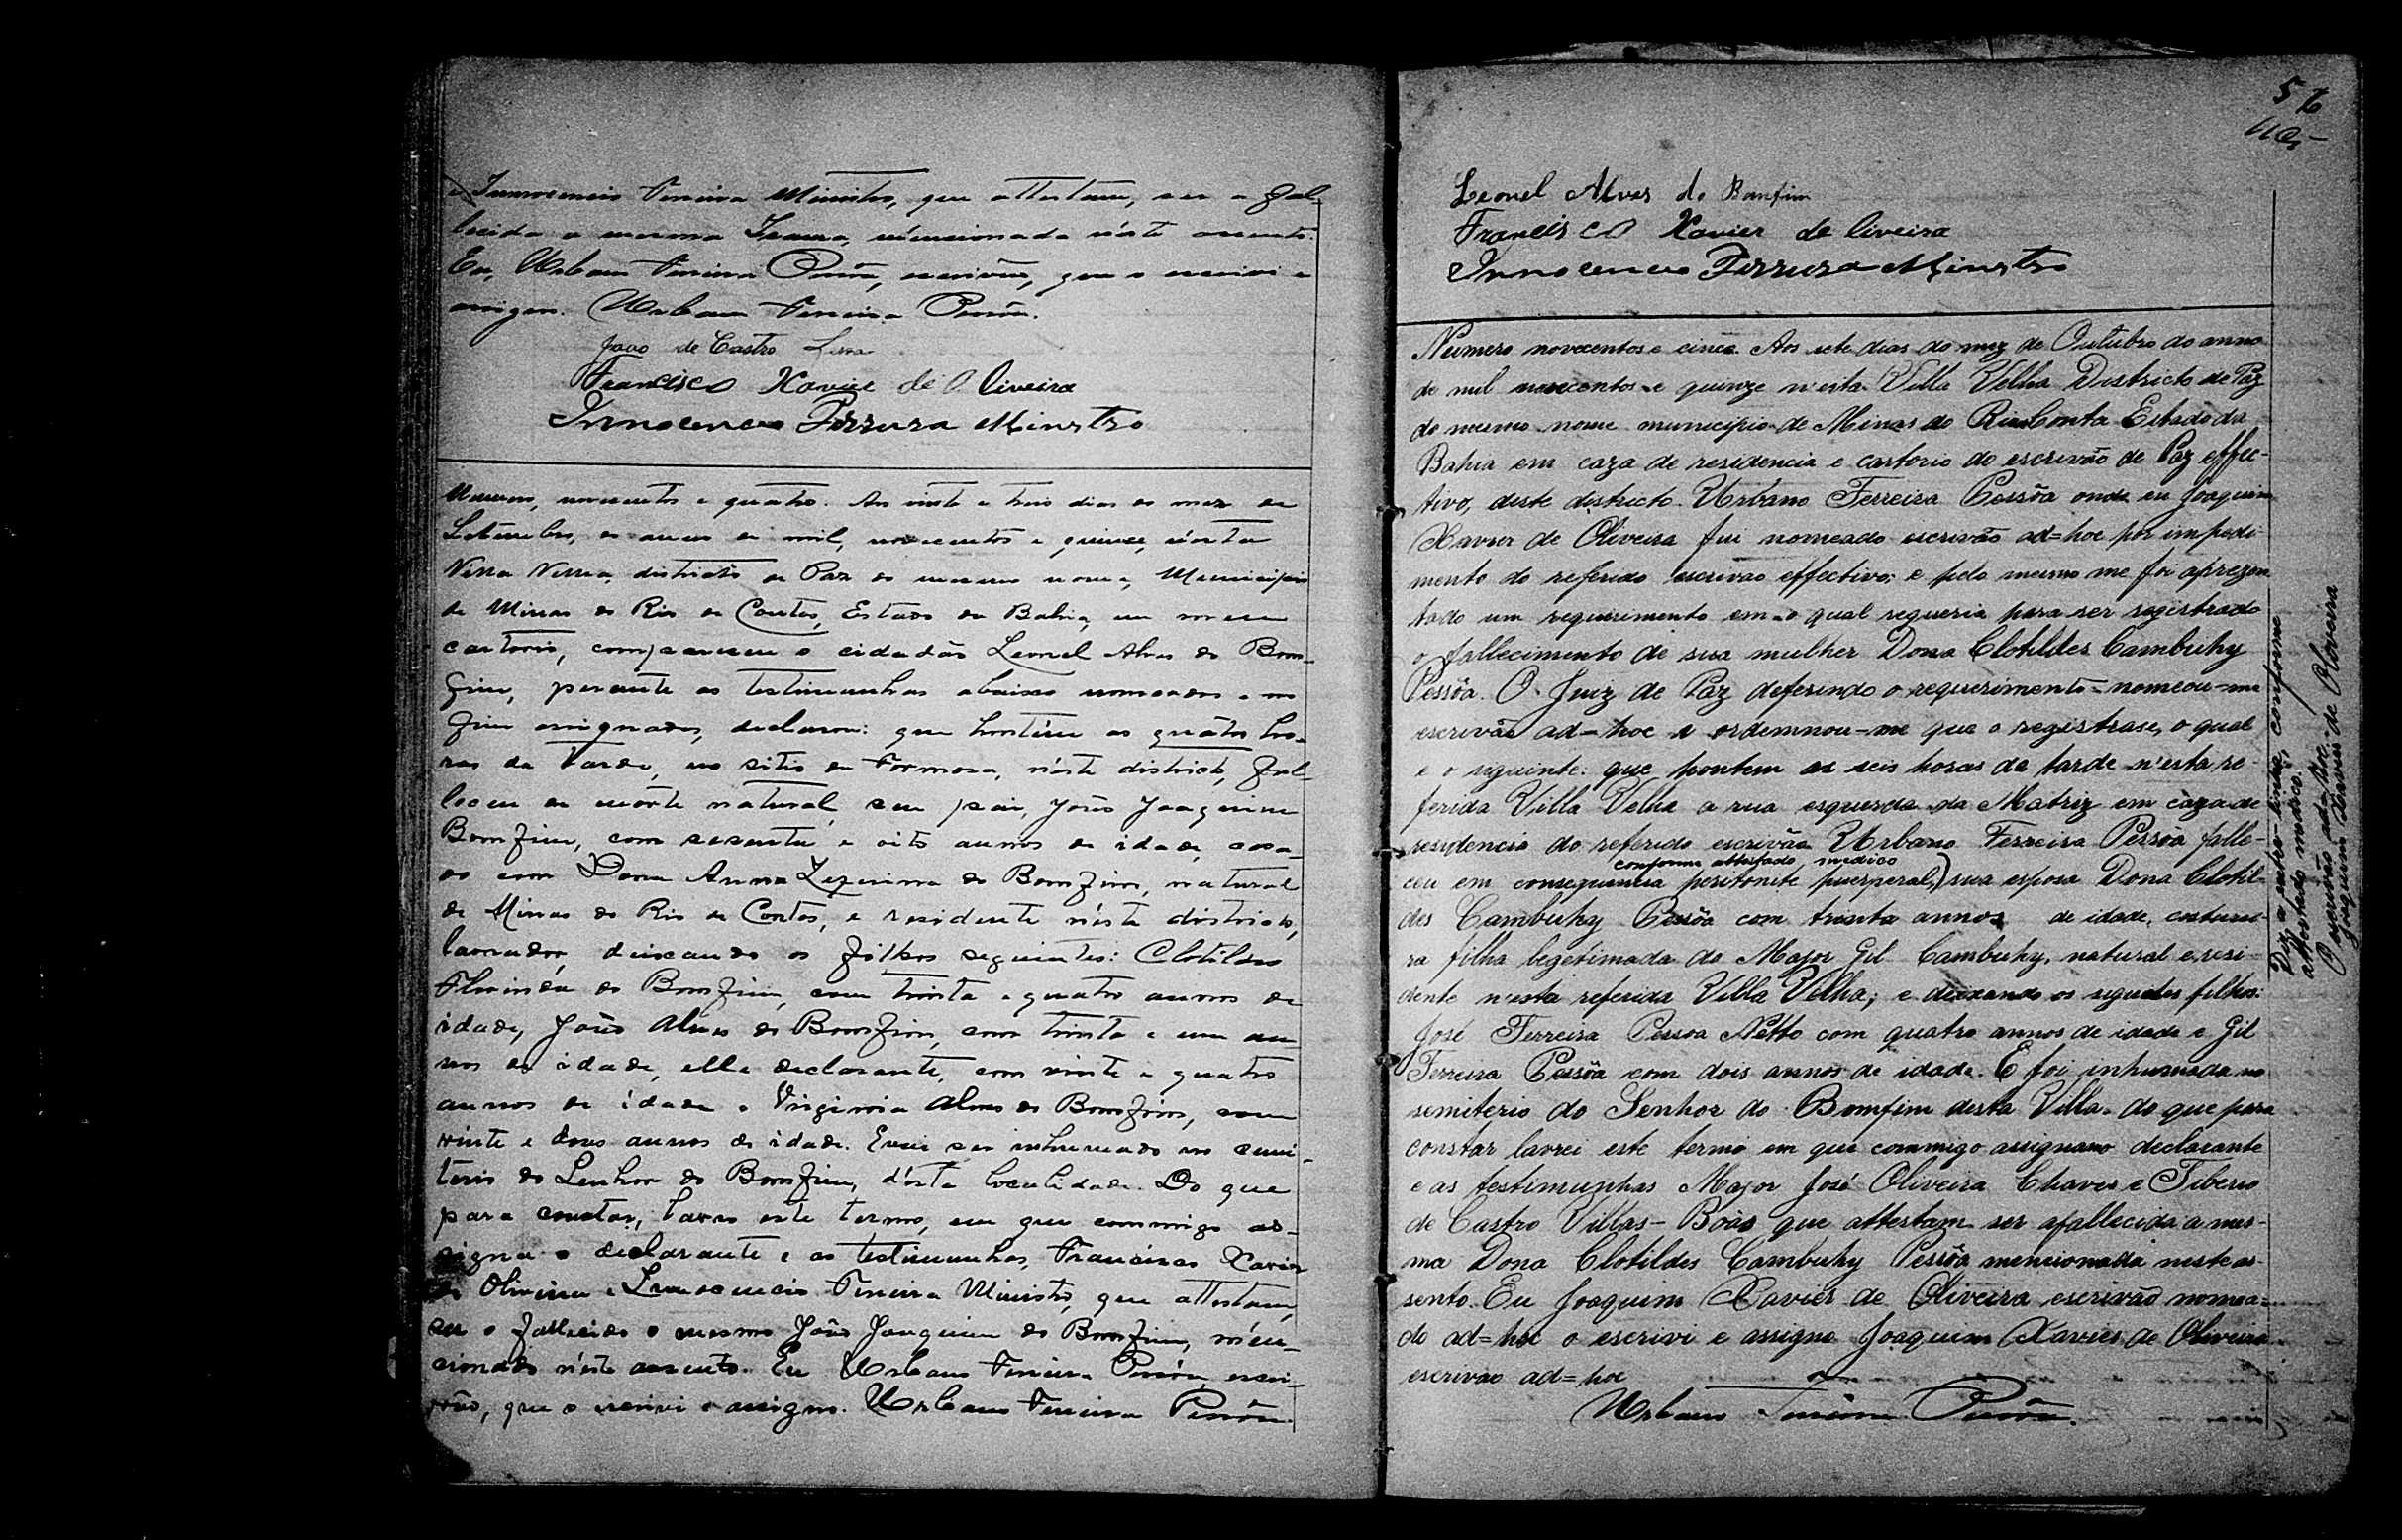 e Innocencio Ferreira Ministro, que attestam, ser a fal-
lecida a mesma Izaura, mencionada n'éste assento.
Eu, Urbano Ferreira Pessôa, escrivão, que o escrevi e
assigno. Urbano Ferreira Pessôa.
João de Castro Lessa
Francisco Xavier de Oliveira
Innocencio Ferrura Minstro
Numero, novecentos e quatro. Aos vinte e tres dias do mez de
Setembro, do anno de mil, novecentos e quinze, n'ésta
Villa Velha, districto de Paz do mesmo nome, Municipio
de Minas do Rio de Contas, Estado da Bahia, em meu
cartorio, compareceu o cidadão Leonel Alves do Bom-
fim, perante as testimunhas abaixo nomeadas e no
fim assignados, declarou: que hontem as quatro ho-
ras da tarde, no sitio da Formosa, n'éste districto, fal-
leceu de mórte natural, seu pai, João Joaquim
Bomfim, com sesenta e oito annos de idade, casa-
do com Dona Anna Zeferina do Bomfim, natural
de Minas do Rio de Contas, e residente n'éste districto,
lavrador, deixando os filhos seguintes: Clotildes
Florinda do Bomfim, com trinta e quatro annos de
idade, João Alves do Bomfim, com trinta e um an-
nos de idade, elle declarante, com vinte e quatro
annos de idade e Virginia Alves do Bomfim, com
vinte e dous annos de idade. E vai ser inhumado no cemi-
terio do Senhor do Bomfim, d'ésta localidade. Do que
para constar, lavro este termo, em que commigo as-
signa o declarante e as testimunhas, Francisco Xavier
de Oliveira e Innocencio Ferreira Ministro, que attestam,
ser o fallecido o mesmo João Joaquim do Bomfim, men-
cionado n'éste assento. Eu Urbano Ferreira Pessôa, escri-
vão, que o escrevi e assigno. Urbano Ferreira Pessôa.
56
Leonel Alves do Bomfim
Francisco Xavier de liveira
Innocencio Ferrura Minstro
Numero novecentos e cinco. Aos sete dias do mez de Outubro do anno
de mil novecentos e quinze n'esta Villa Velha Districto de Paz
do mesmo nome municipio de Minas do Rio Conta Estado da
Bahia em caza de residencia e cartorio do escrivão de Paz effec-
tivo, deste districto Urbano Ferreira Pessôa onde eu Joaquim
Xavier de Oliveira fui nomeado escrivão ad=hoc por impedi-
mento do referido escrivão effectivo; e pelo mesmo me foi aprezen-
tado um requirimento em o qual requeria para ser registrado
o fallecimento de sua mulher Dona Clotildes Cambuhy
Pessôa. O Juiz de Paz deferindo o requerimento nomeou-me
escrivão ad=hoc e ordemnou-me que o registrase, o qual
e o siguinte: que hontem as seis horas da tarde n'esta re-
ferida Villa Velha a rua esquerda da Matriz em caza de
residencia do referido escrivão Urbano Ferreira Pessôa falle-
conforme attestado medico
ceu em consequencia peritonite puerperal,) sua esposa Dona Clotil-
des Cambuhy Pessôa com trinta annos de idade, costurei-
ra filha legetimada do Major Gil Cambuhy, natural e resi-
dente n'esta referida Villa Velha; e deixando os siguintes filhos:
José Ferreira Pessoa Netto com quatro annos de idade e Gil
Ferreira Pessôa com dois annos de idade. E foi inhumada no
semiterio do Senhor do Bomfim desta Villa. do que para
constar lavrei este termo em que commigo assignamo declarante
e as testimunhas Major José Oliveira Chaves e Tiberio
de Castro Villas-Bôas que attestam ser afallecida a mes-
ma Dona Clotildes Cambuhy Pessôa mencionada neste as-
sento. Eu Joaquim Xavier de Oliveira escrivão nomea-
do ad=hoc o escrivi e assigno Joaquim Xavier de Oliveira
escrivão ad=hoc
Urbano Ferreira Pessôa.
Diz a entre-linha, conforme
attestado medico.
O escrivão ad-hoc.
Joaquim Xavier de Oliveira